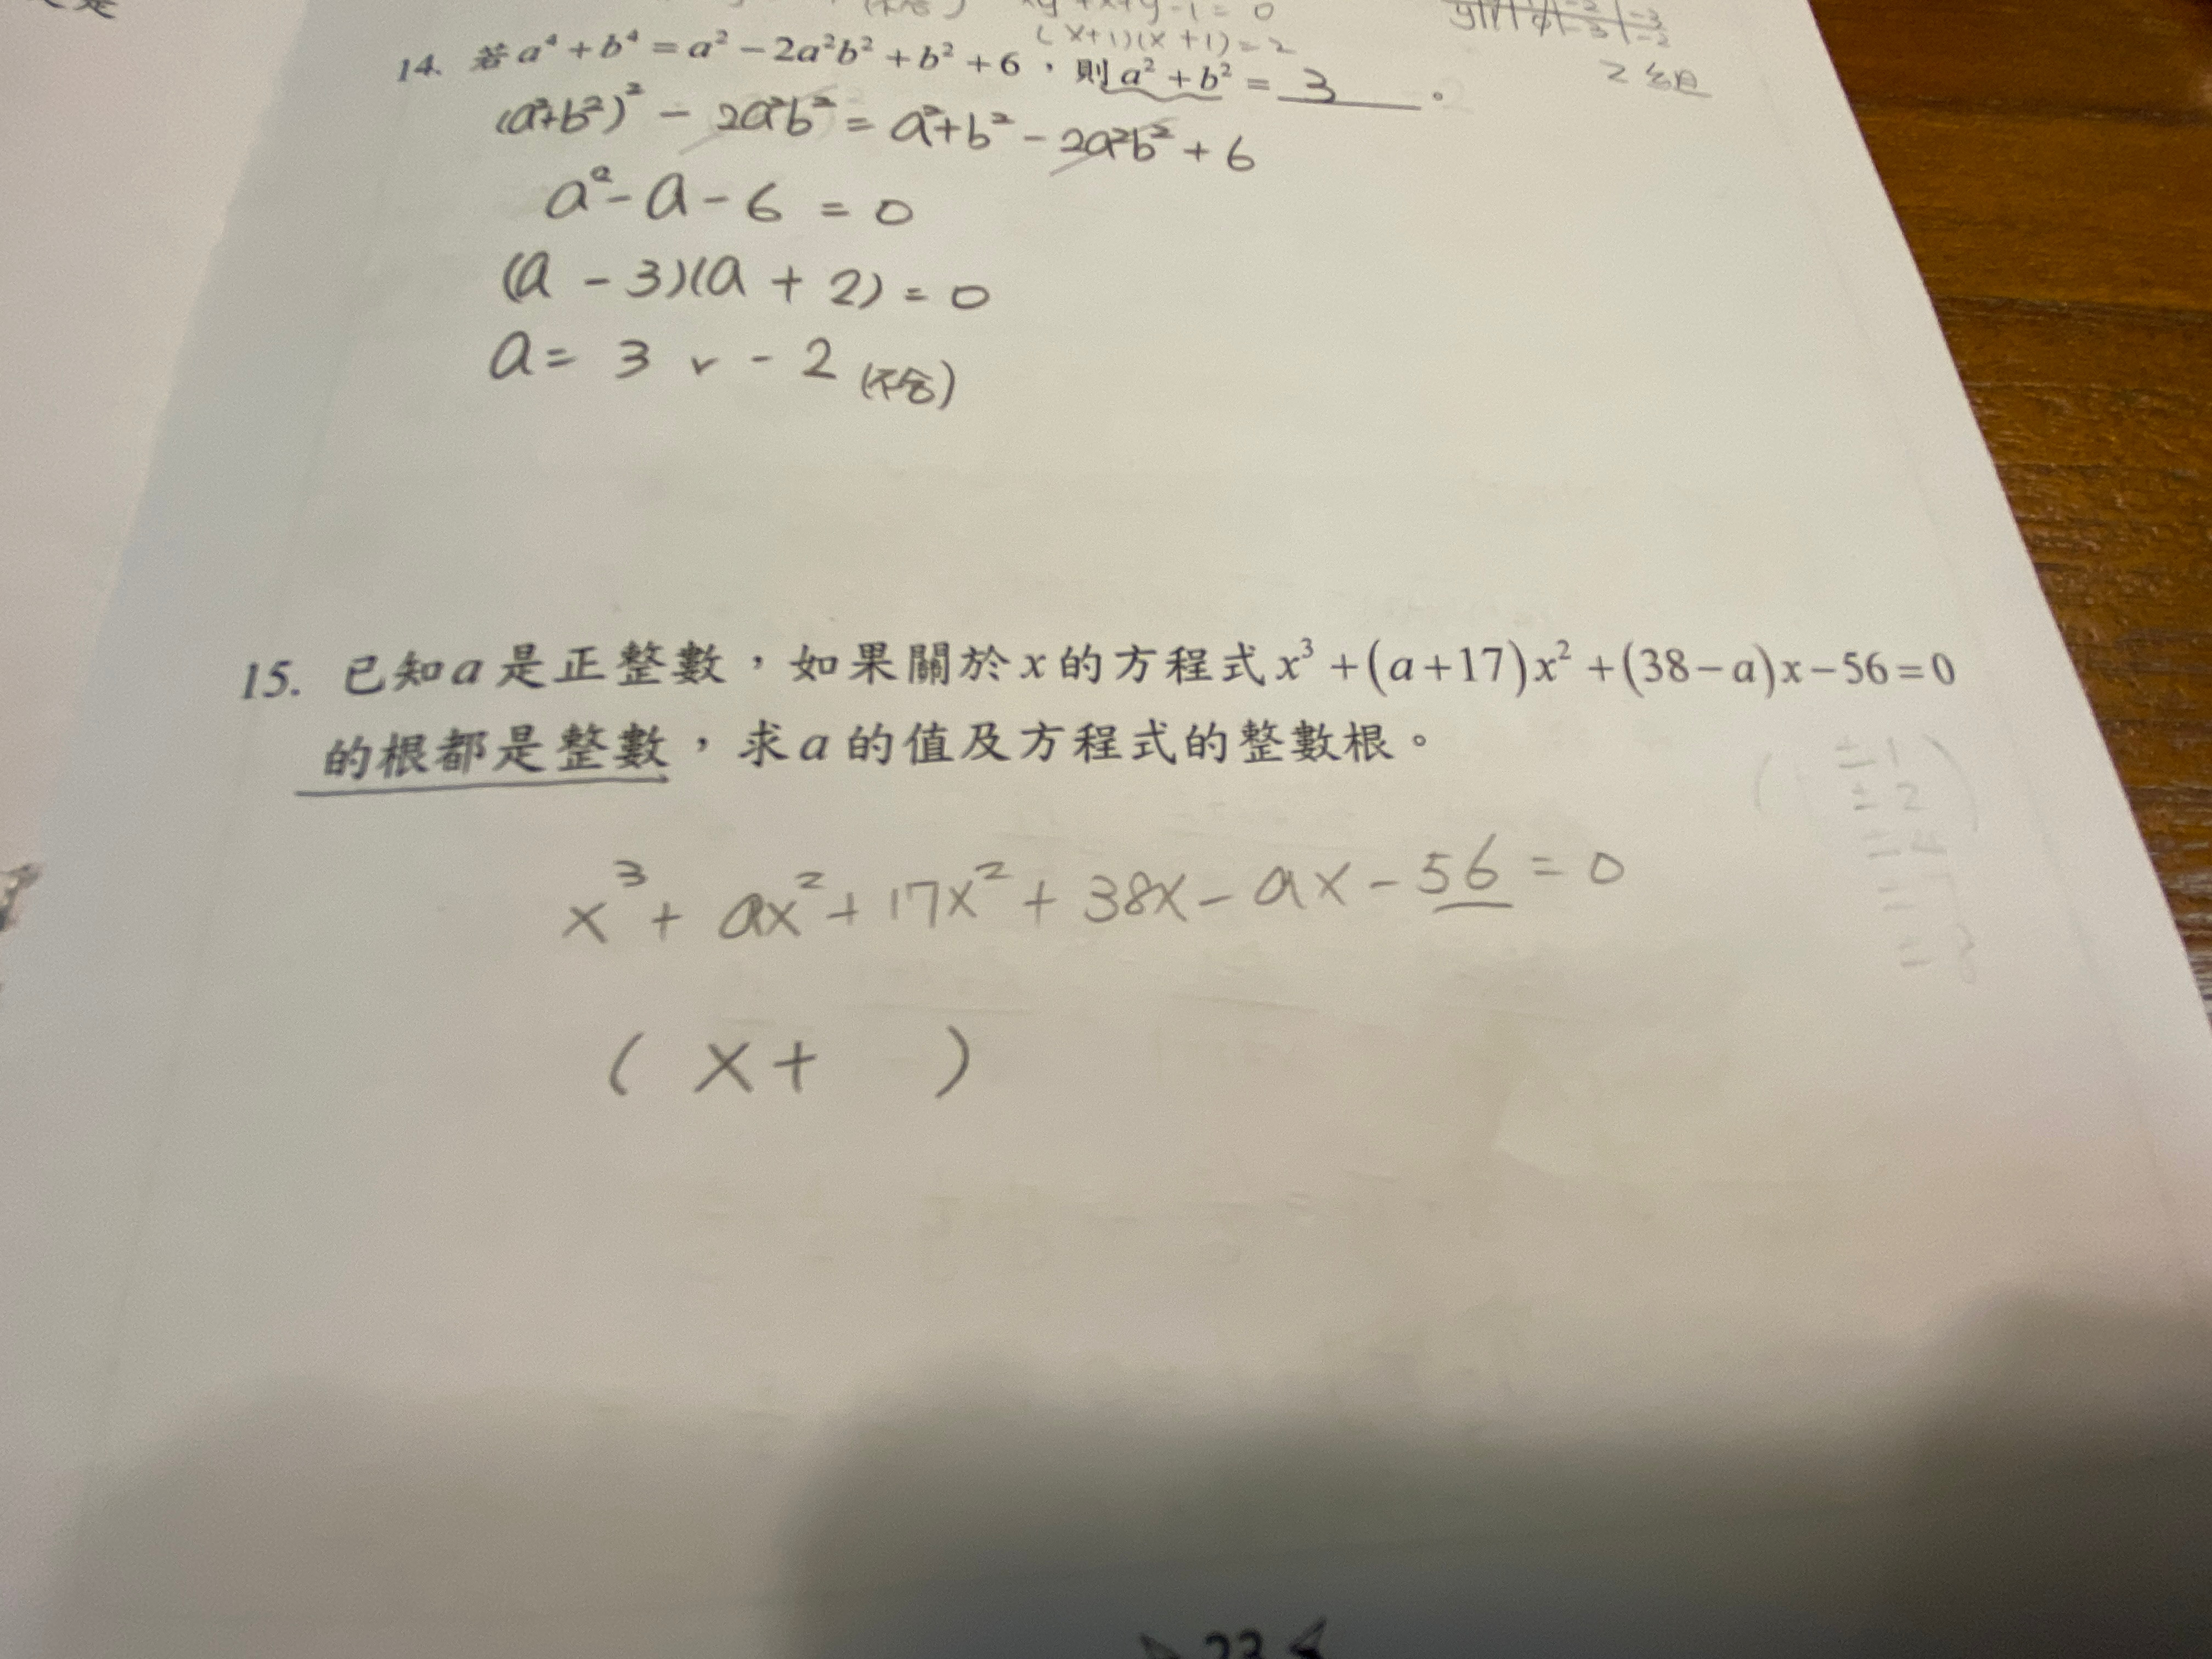 (不合)
xy+x+y-1=0
(x+1)(x+1)=2
2組
14. 若 a⁴+b⁴=a²-2a²b²+b²+6,則 a²+b²= 3 。
(a²+b²)² - 2a²b² = a²+b² - 2a²b² + 6
a² - a - 6 = 0
(a - 3)(a + 2) = 0
a = 3 v - 2 (不合)
15. 已知a是正整數,如果關於x的方程式x³+(a+17)x²+(38-a)x-56=0
的根都是整數,求a的值及方程式的整數根。
±1
±2
x³ + ax² + 17x² + 38x - ax - 56 = 0
( x + )
23